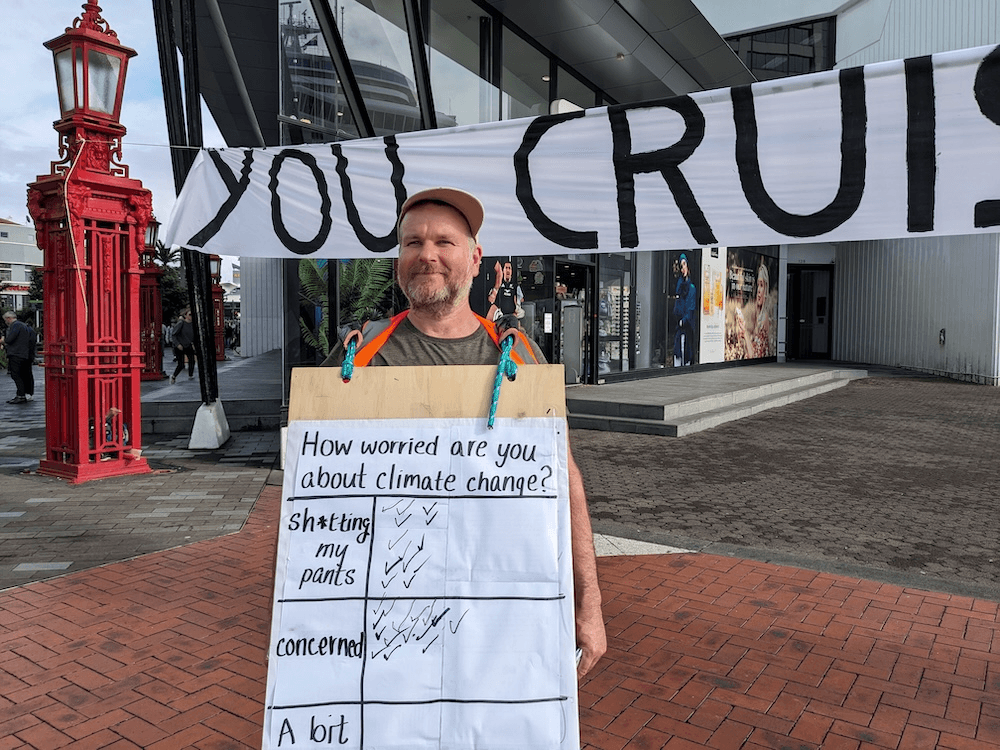 YOU CRUIS
How worried are you
about climate change?
Sh*tting
my
pants
concerned
A bit